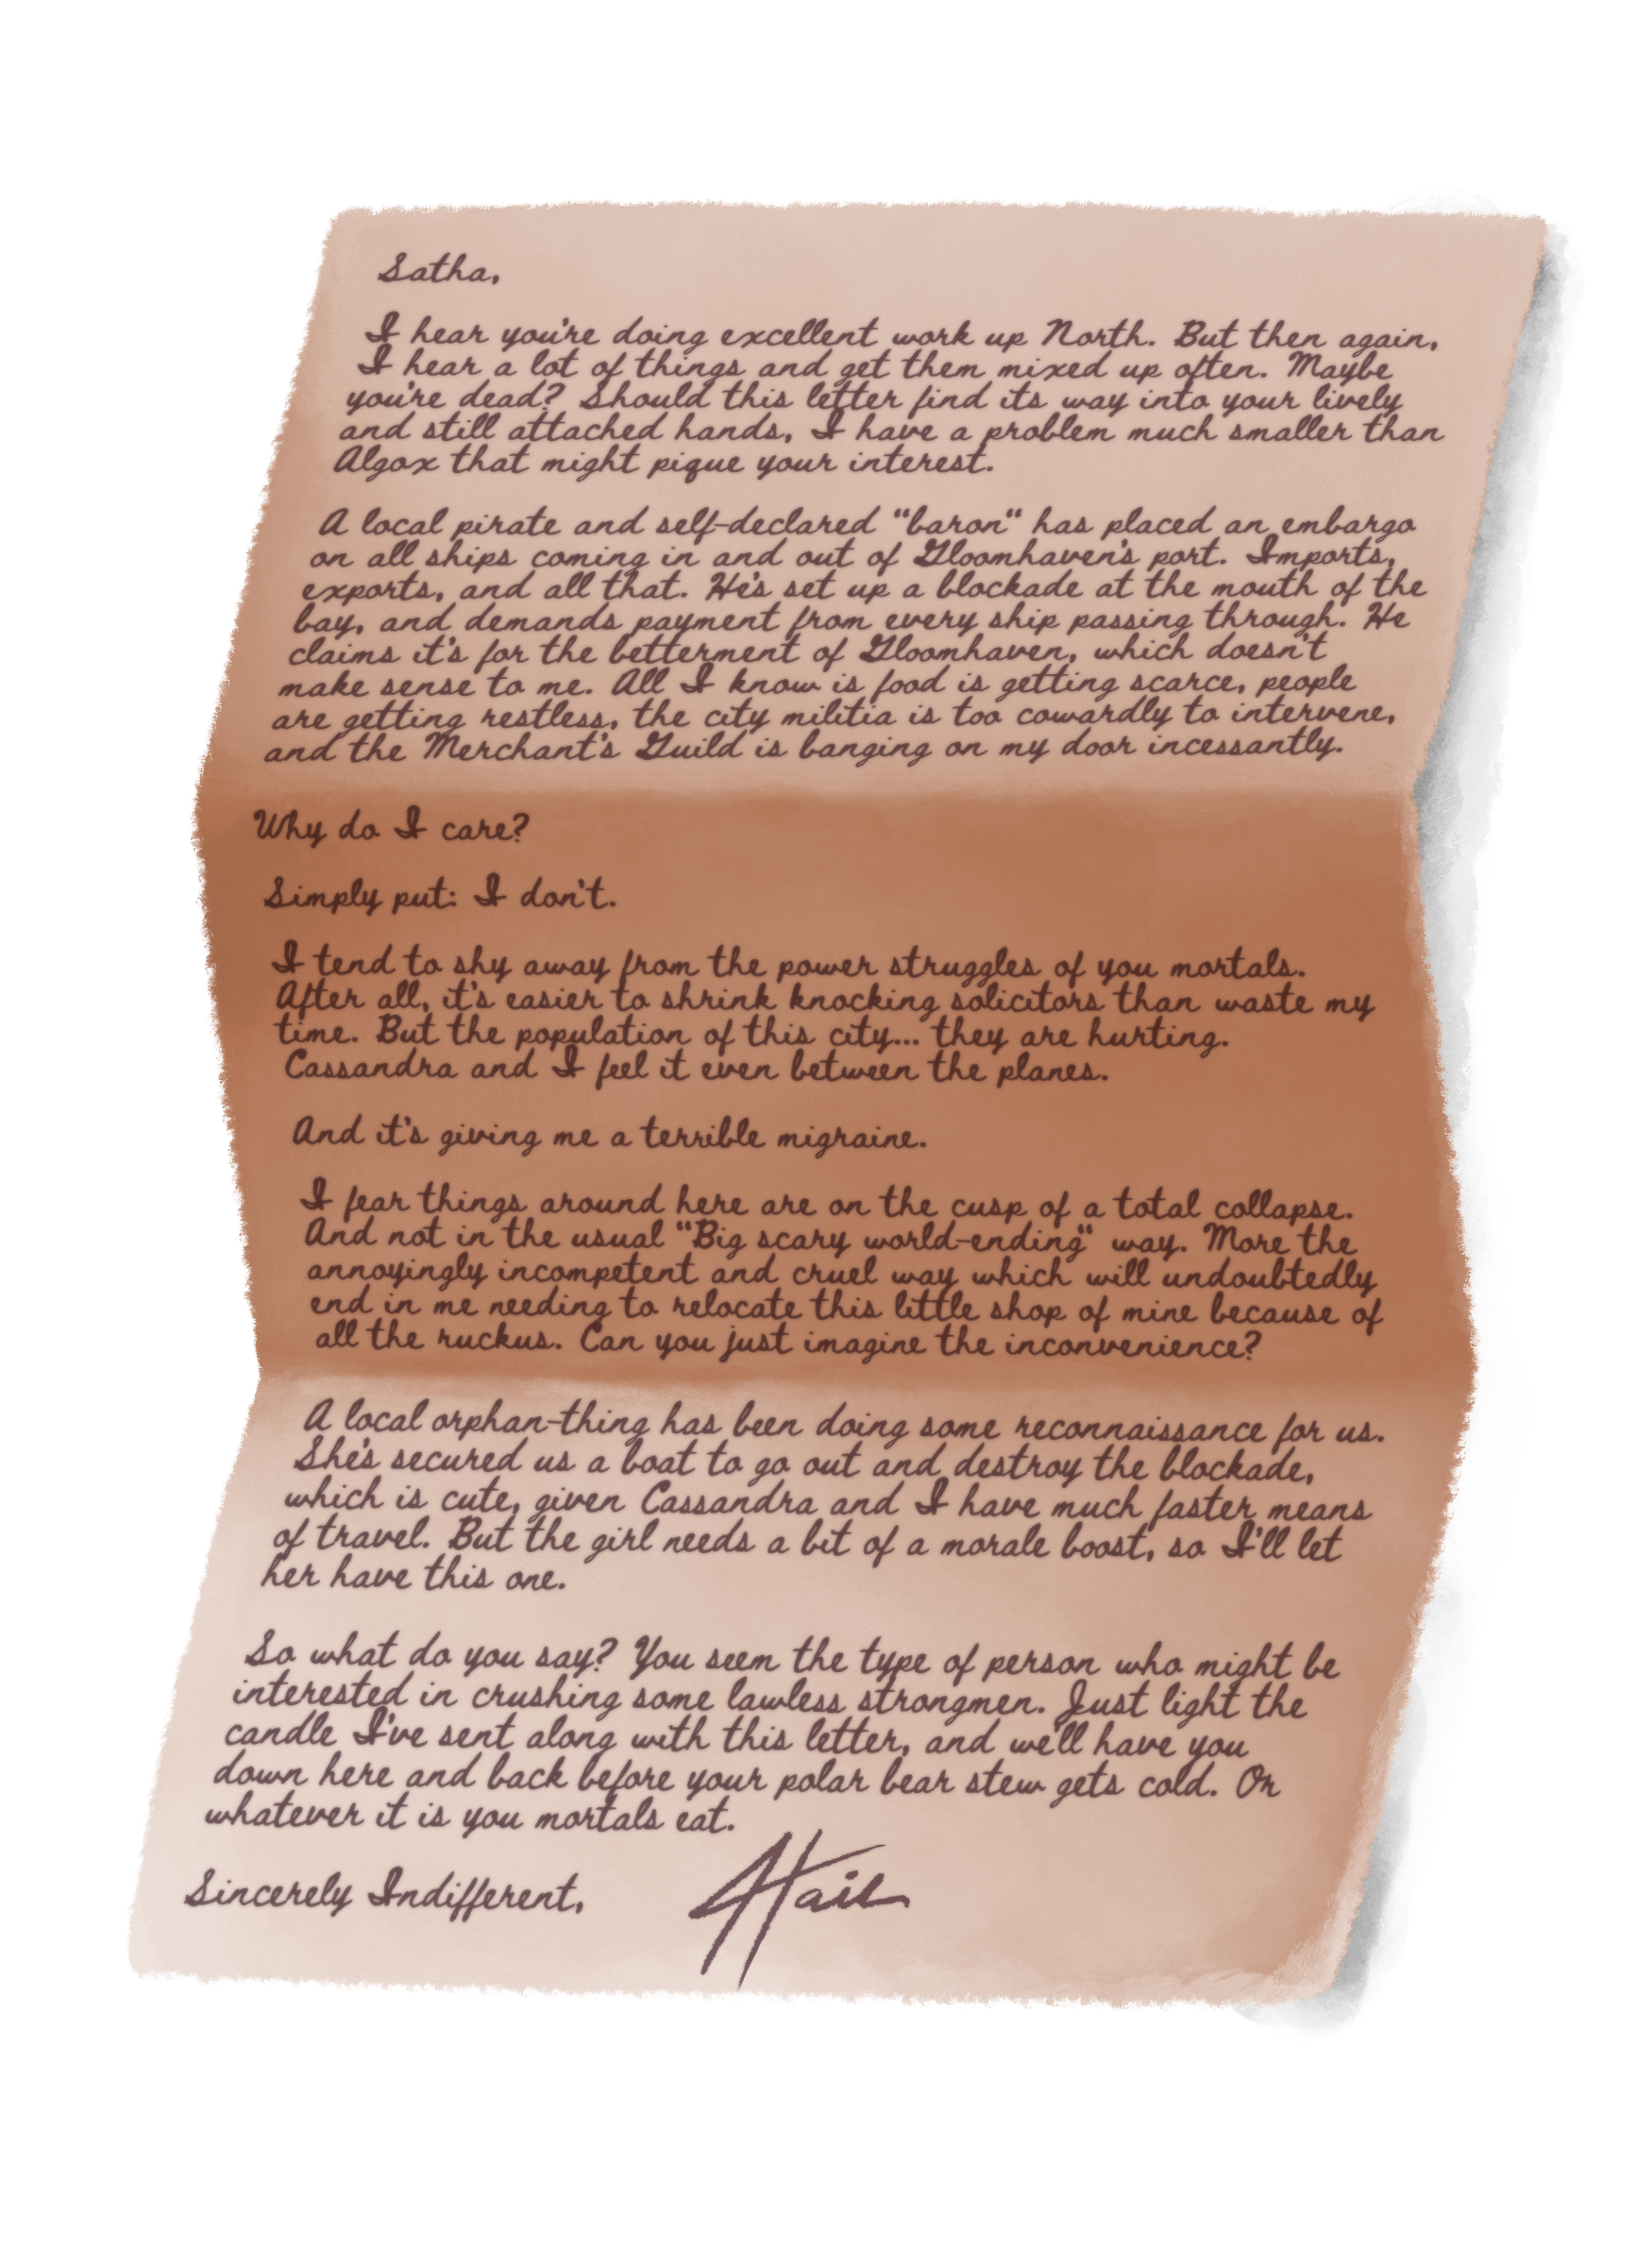 Satha,
I hear you're doing excellent work up North. But then again,
I hear a lot of things and get them mixed up often. Maybe
you're dead? Should this letter find its way into your lively
and still attached hands, I have a problem much smaller than
Algox that might pique your interest.
A local pirate and self-declared "baron" has placed an embargo
on all ships coming in and out of Gloomhaven's port. Imports,
exports, and all that. He's set up a blockade at the mouth of the
bay, and demands payment from every ship passing through. He
claims it's for the betterment of Gloomhaven, which doesn't
make sense to me. All I know is food is getting scarce, people
are getting restless, the city militia is too cowardly to intervene,
and the Merchant's Guild is banging on my door incessantly.
Why do I care?
Simply put: I don't.
I tend to shy away from the power struggles of you mortals.
After all, it's easier to shrink knocking solicitors than waste my
time. But the population of this city... they are hurting.
Cassandra and I feel it even between the planes.
And it's giving me a terrible migraine.
I fear things around here are on the cusp of a total collapse.
And not in the usual "Big scary world-ending" way. More the
annoyingly incompetent and cruel way which will undoubtedly
end in me needing to relocate this little shop of mine because of
all the ruckus. Can you just imagine the inconvenience?
A local orphan-thing has been doing some reconnaissance for us.
She's secured us a boat to go out and destroy the blockade,
which is cute, given Cassandra and I have much faster means
of travel. But the girl needs a bit of a morale boost, so I'll let
her have this one.
So what do you say? You seem the type of person who might be
interested in crushing some lawless strongmen. Just light the
candle I've sent along with this letter, and we'll have you
down here and back before your polar bear stew gets cold. Or
whatever it is you mortals eat.
Sincerely Indifferent, Hail